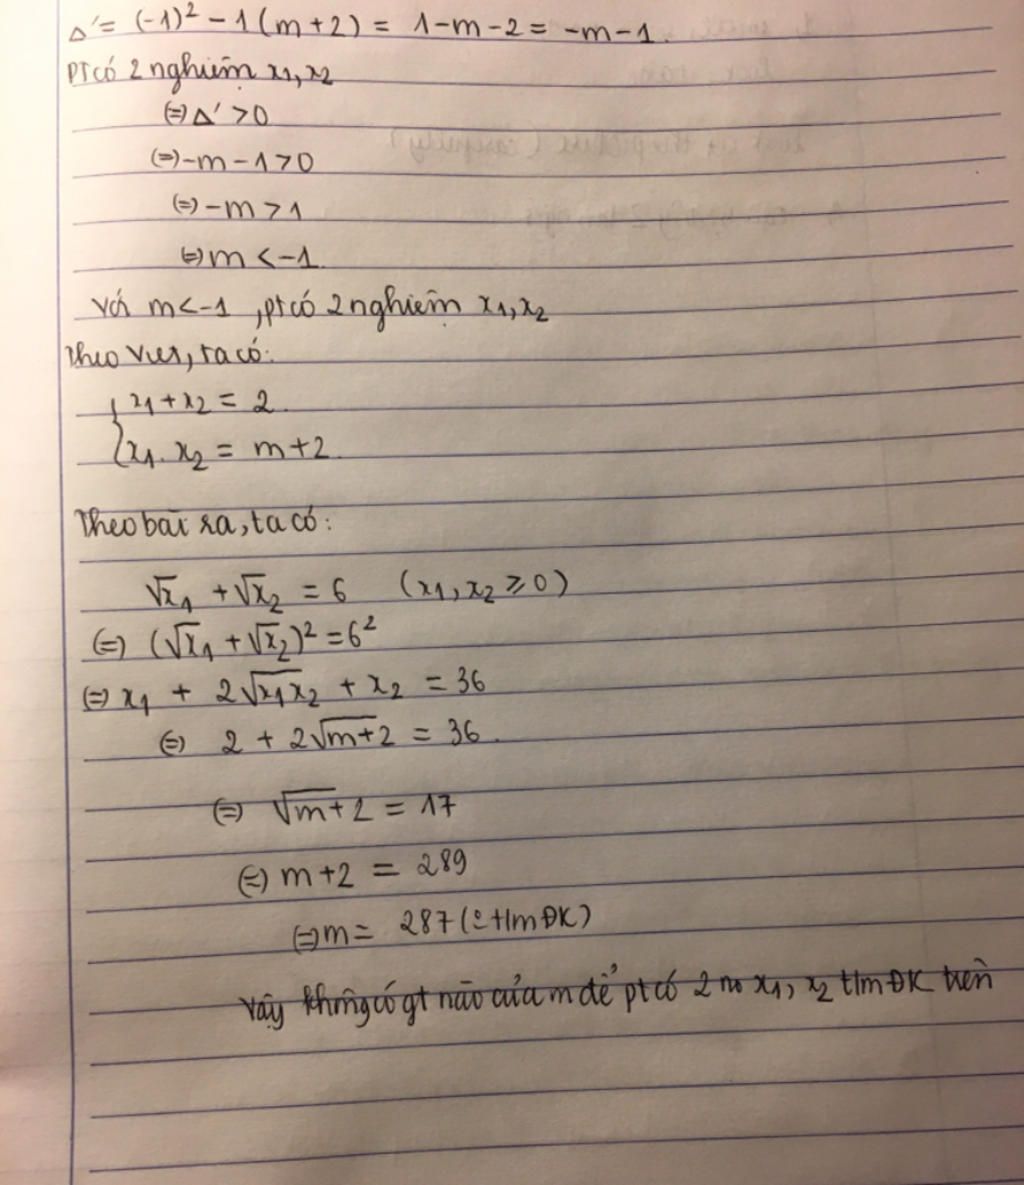 Δ' = (-1)² - 1(m+2) = 1-m-2 = -m-1.
PT có 2 nghiệm x₁, x₂
(=) Δ' > 0
(=) -m - 1 > 0
(=) -m > 1
(=) m < -1.
Với m < -1, pt có 2 nghiệm x₁, x₂
Theo Viet, ta có:
{ x₁ + x₂ = 2.
x₁ . x₂ = m+2.
Theo bài ra, ta có:
√x₁ + √x₂ = 6 (x₁, x₂ ⩾ 0)
(=) (√x₁ + √x₂)² = 6²
(=) x₁ + 2√x₁x₂ + x₂ = 36
(=) 2 + 2√m+2 = 36.
(=) √m+2 = 17
(=) m+2 = 289
(=) m = 287 ( t/m ĐK)
Vậy không có gt nào của m để pt có 2 no x₁, x₂ t/m ĐK trên